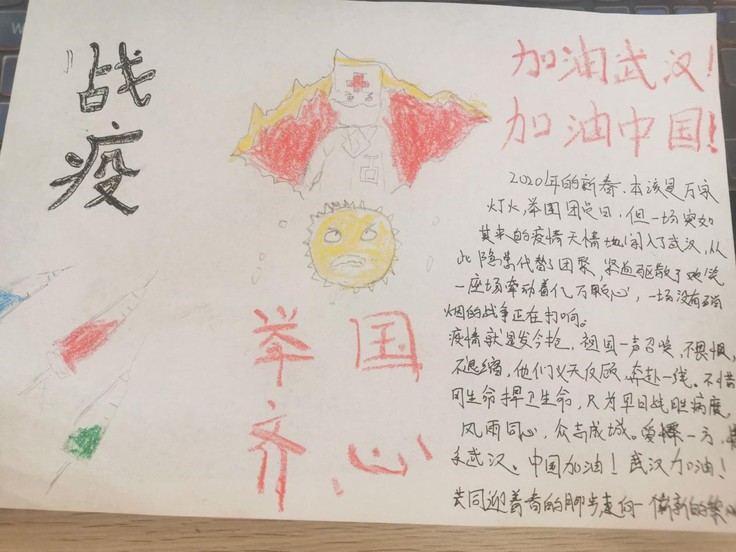 战
疫
加油武汉!
加油中国!
2020年的新春,本该是万家
灯火,举国团圆日,但一场突如
其来的疫情天情地闯入了武汉,从
此隔离代替了团聚,紧迫驱散了
一座城牵动着亿万颗心,一场没有硝
烟的战争正在打响。
疫情就是发令枪,祖国一声召唤,不畏惧,
不退缩,他们义无反顾,奔赴一线。不惜
用生命捍卫生命,只为早日战胜病魔,
风雨同心,众志成城。
武汉、中国加油!武汉加油!
共同迎着春的脚步走向一
举国
齐心